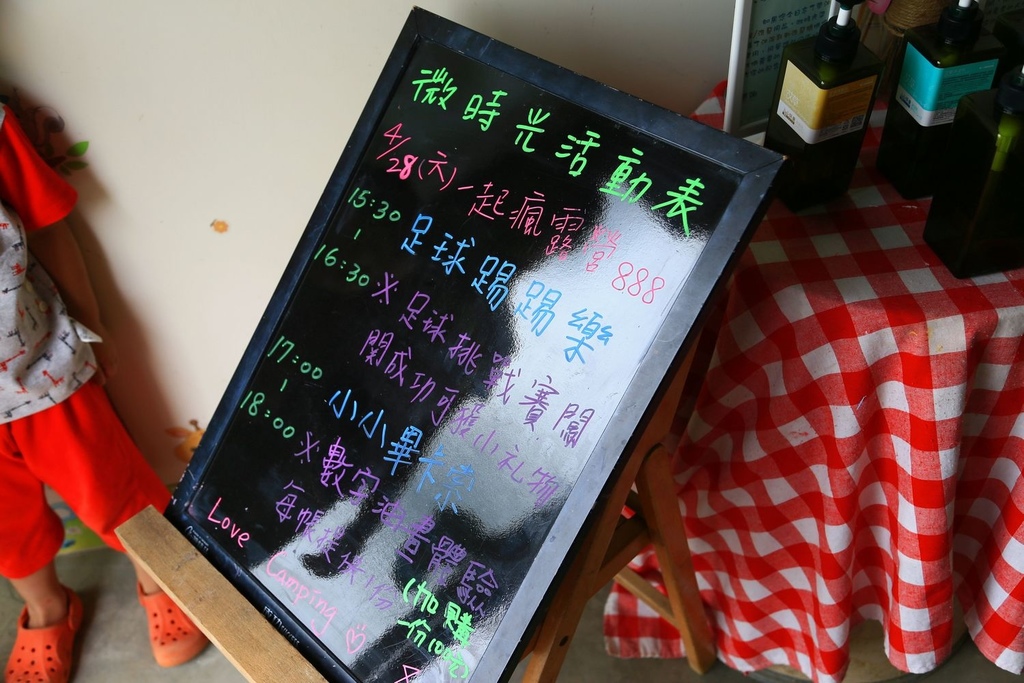 微時光活動表
4/28(六)一起瘋露營888
15:30
|
16:30
足球踢踢樂
※足球挑戰賽闖
關成功可獲小礼物
17:00
|
18:00
小小畢卡索
※數字油畫體驗
每帳提供1份
(加購
一份100元)
Love
Camping♡